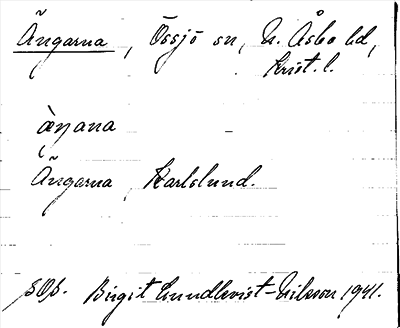 Ängarna, Össjö sn, N. Åsbo hd,
Krist. l.
Ängarna, Karlslund.
Birgit Lundkvist-Nilsson 1941.